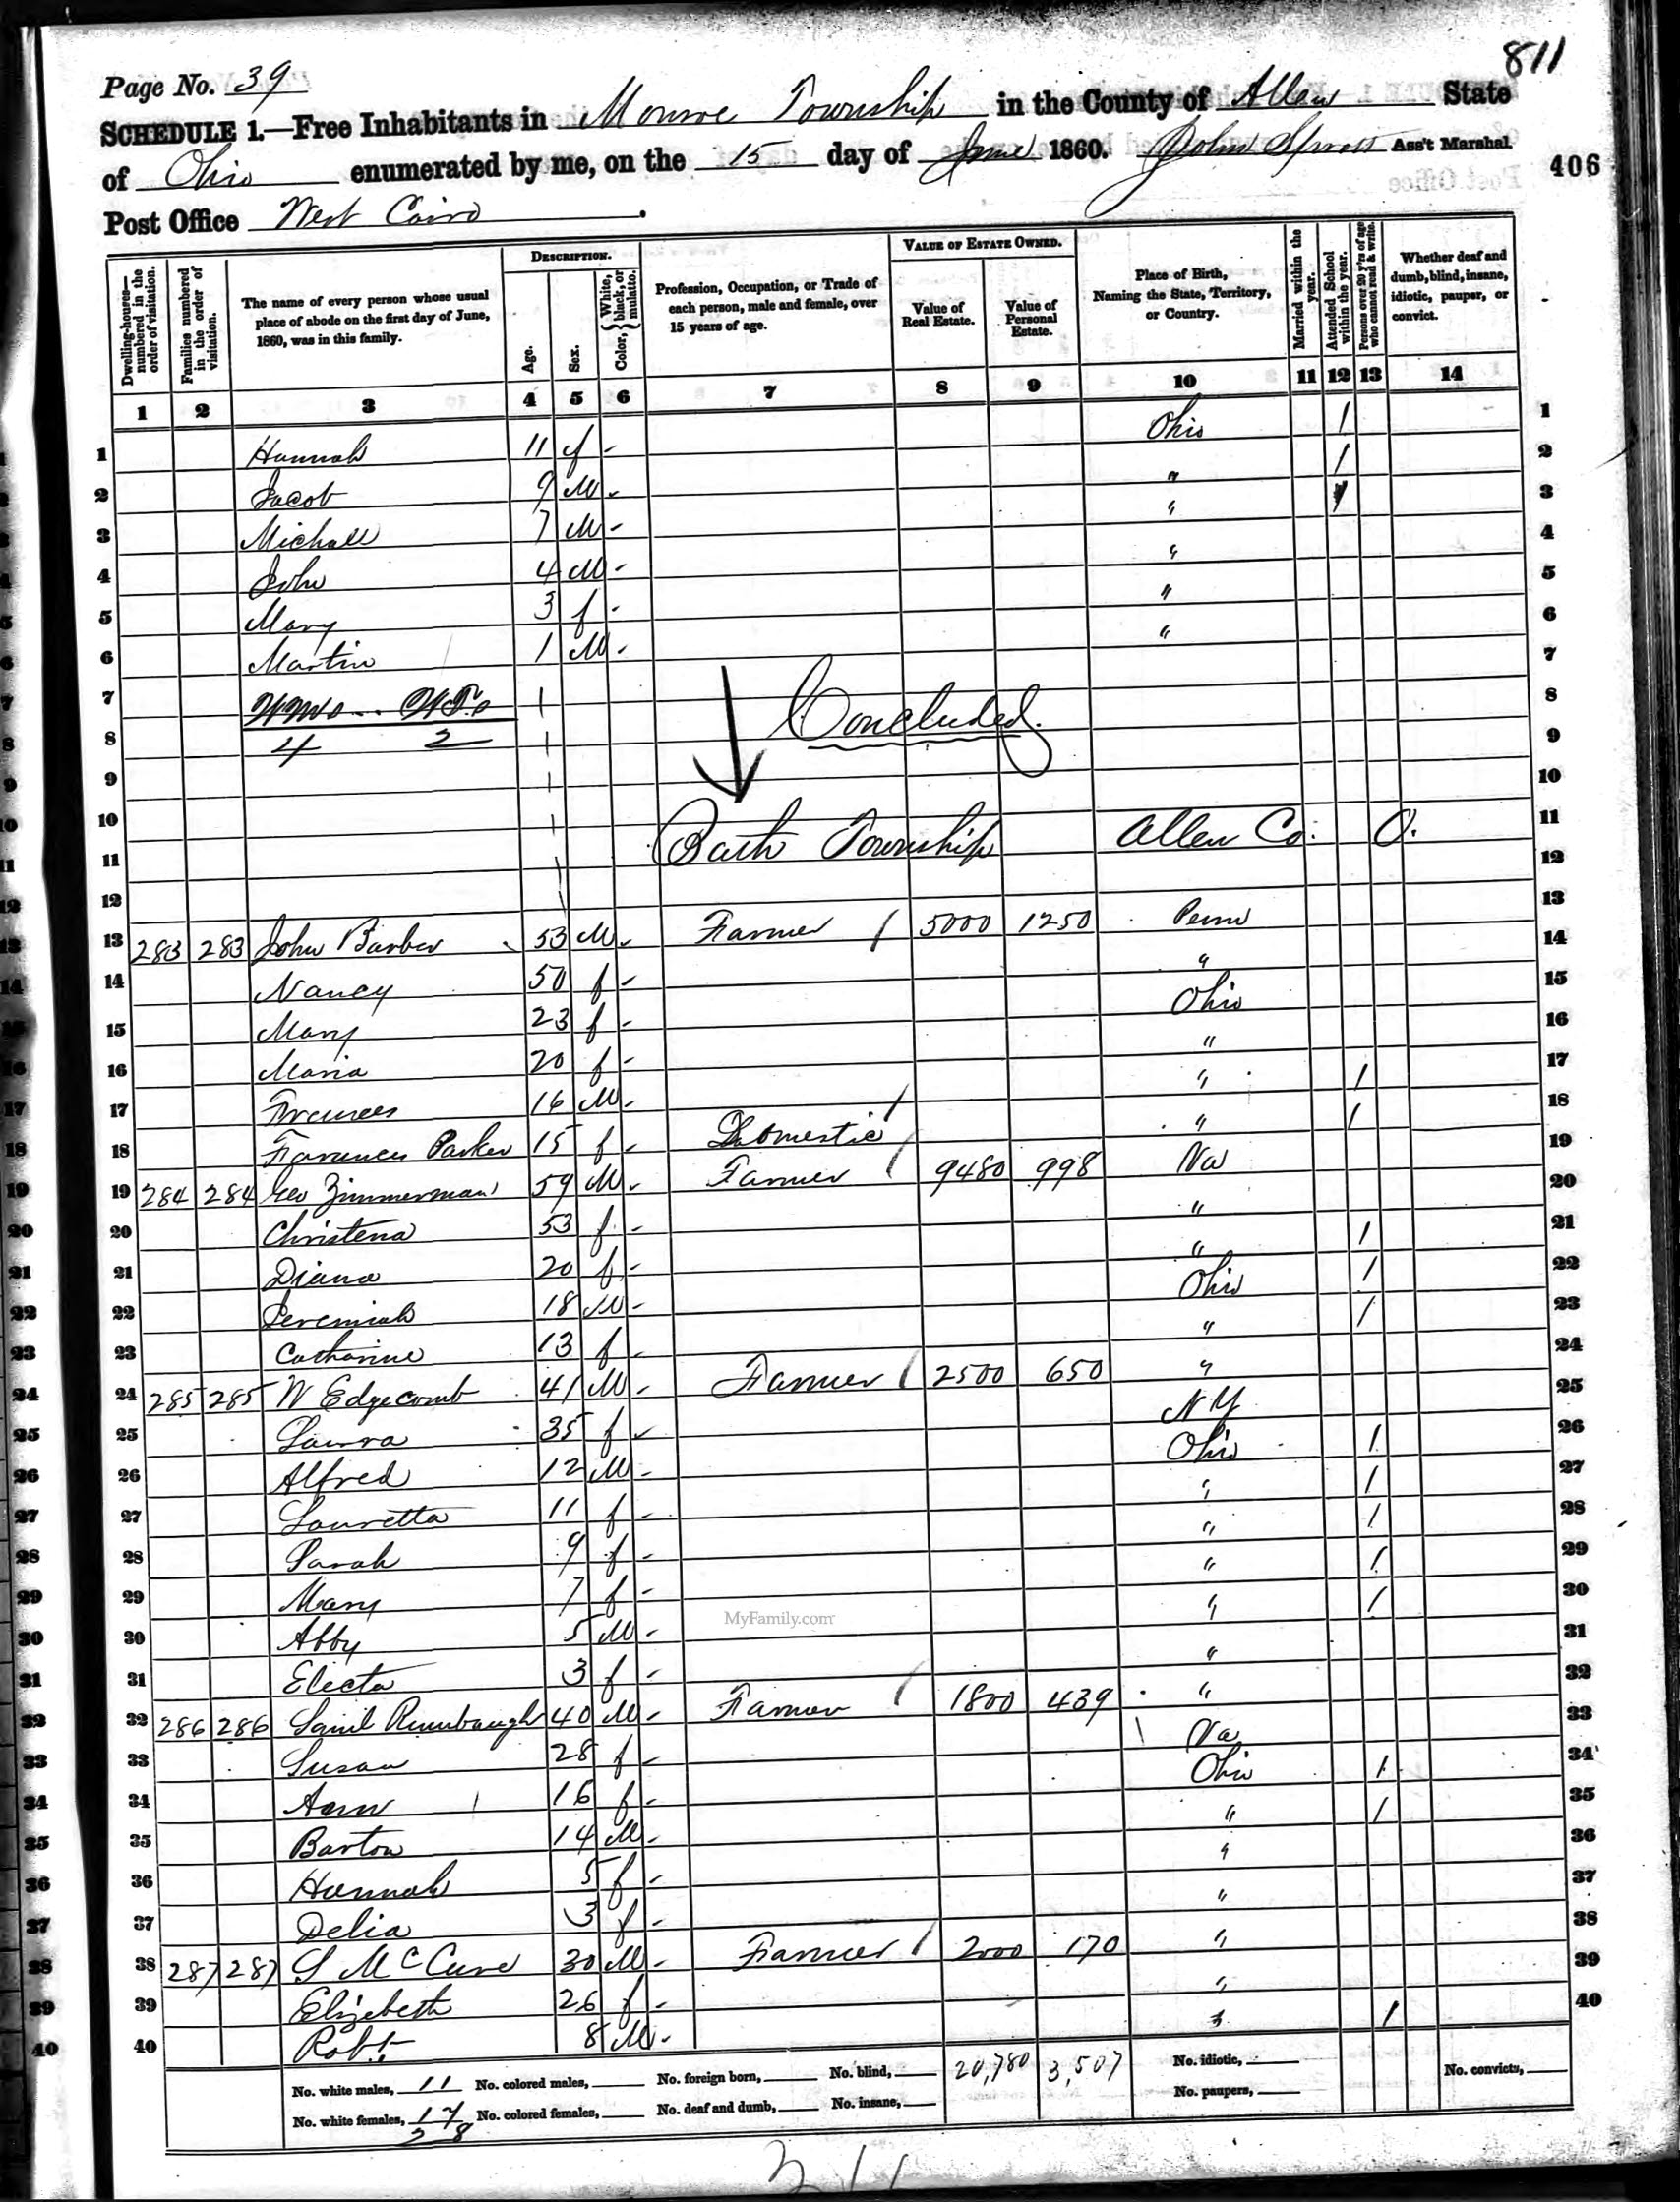 811
Page No. 39
SCHEDULE 1.—Free Inhabitants in Monroe Township in the County of Allen State
of Ohio enumerated by me, on the 15 day of June 1860. John Ass't Marshal.
406
Post Office West Cairo
Dwelling-houses—numbered in the order of visitation.
Families numbered in the order of visitation.
The name of every person whose usual place of abode on the first day of June, 1860, was in this family.
DESCRIPTION.
Age.
Sex.
Color, { White, black, or mulatto.
Profession, Occupation, or Trade of each person, male and female, over 15 years of age.
VALUE OF ESTATE OWNED.
Value of Real Estate.
Value of Personal Estate.
Place of Birth, Naming the State, Territory, or Country.
Married within the year.
Attended School within the year.
Persons over 20 y'rs of age who cannot read & write.
Whether deaf and dumb, blind, insane, idiotic, pauper, or convict.
1 2 3 4 5 6 7 8 9 10 11 12 13 14
1 Hannah 11 f - Ohio / 1
2 Jacob 9 M - " / 2
3 Michael 7 M - " / 3
4 John 4 M - " 4
5 Mary 3 f - " 5
6 Martin 1 M - " 6
7 7
8 4 2 Concluded. 8
9 9
10 10
11 Bath Township Allen Co. O. 11
12 12
13 283 283 John Barber 53 M - Farmer / 5000 1250 Penn 13
14 Nancy 50 f - " 14
15 Mary 23 f - Ohio 15
16 Maria 20 f - " 16
17 16 M - " / 17
18 Parker 15 f - Domestic / " / 18
19 284 284 Geo Zimmerman 59 M - Farmer / 9480 998 Va 19
20 Christena 53 f - " 20
21 Diana 20 f - " / 21
22 Jeremiah 18 M - Ohio / 22
23 Catharine 13 f - " / 23
24 285 285 W Edgecomb 41 M - Farmer / 2500 650 " 24
25 Laura 35 f - N Y 25
26 Alfred 12 M - Ohio / 26
27 Louretta 11 f - " / 27
28 Sarah 9 f - " / 28
29 Mary 7 f - " / 29
30 Abby 5 M - " / 30
MyFamily.com
31 Electa 3 f - " 31
32 286 286 Saml Rumbaugh 40 M - Farmer / 1800 439 " 32
33 Susan 28 f - Va 33
34 Ann 16 f - Ohio / 34
35 Barton 14 M - " / 35
36 Hannah 5 f - " 36
37 Delia 3 f - " 37
38 287 287 S McCune 30 M - Farmer / 2000 170 " 38
39 Elizebeth 26 f - " 39
40 Robt 8 M - " / 40
No. white males, 11 No. colored males, No. foreign born, No. blind, 20,780 3,507 No. idiotic, No. convicts,
No. white females, 17 No. colored females, No. deaf and dumb, No. insane, No. paupers,
28